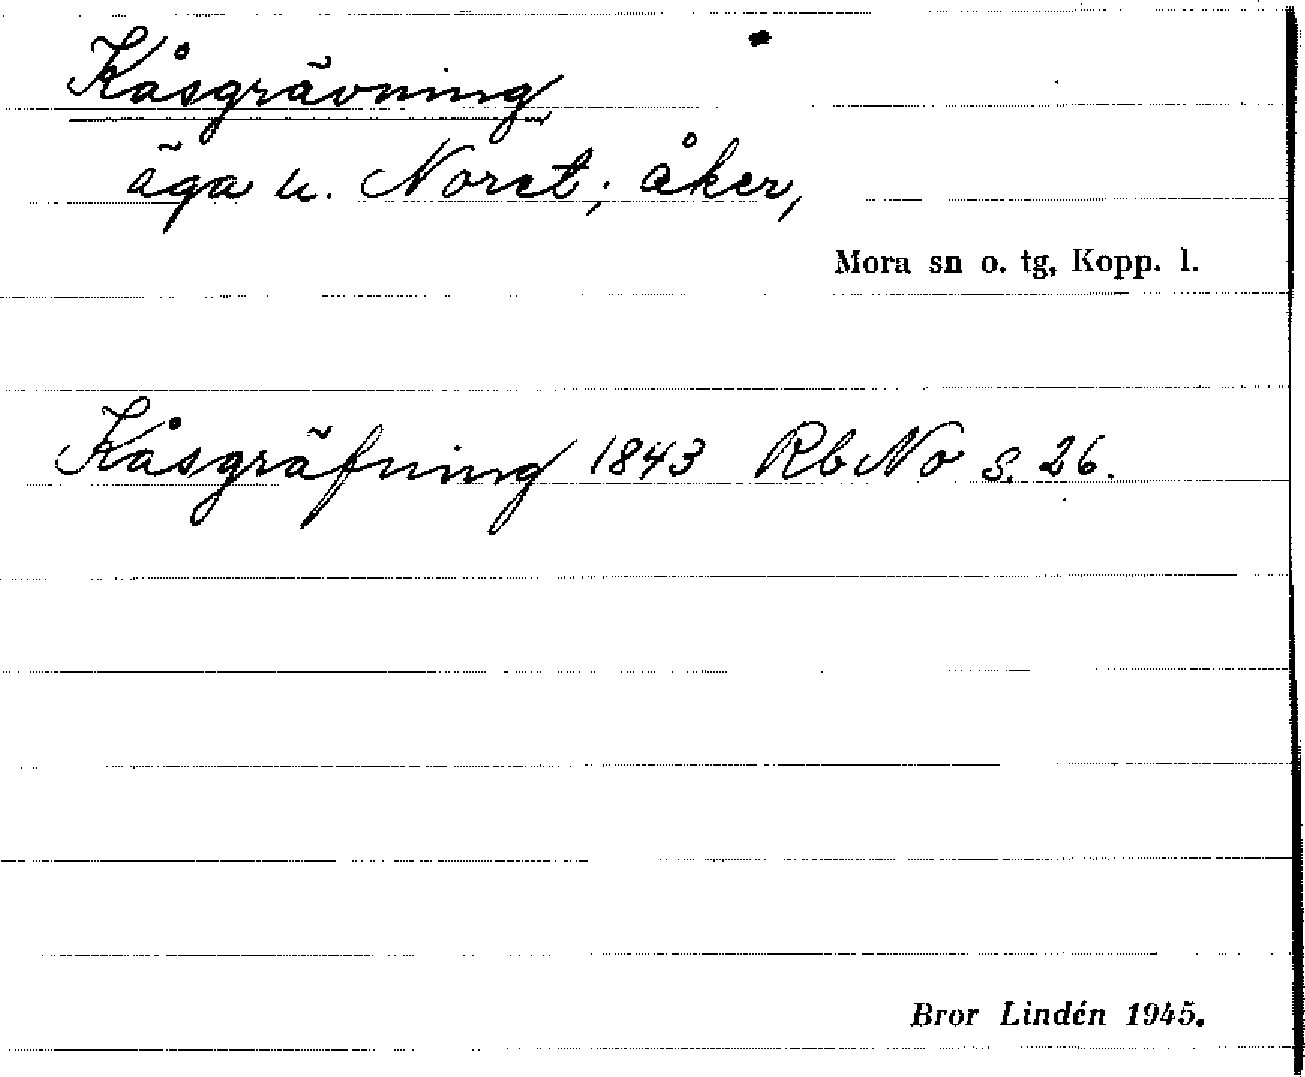 Kåsgrävning
äga u. Noret; åker,
Mora sn o. tg, Kopp. l.
Kåsgräfning 1843 Rb No s. 26.
Bror Lindén 1945.